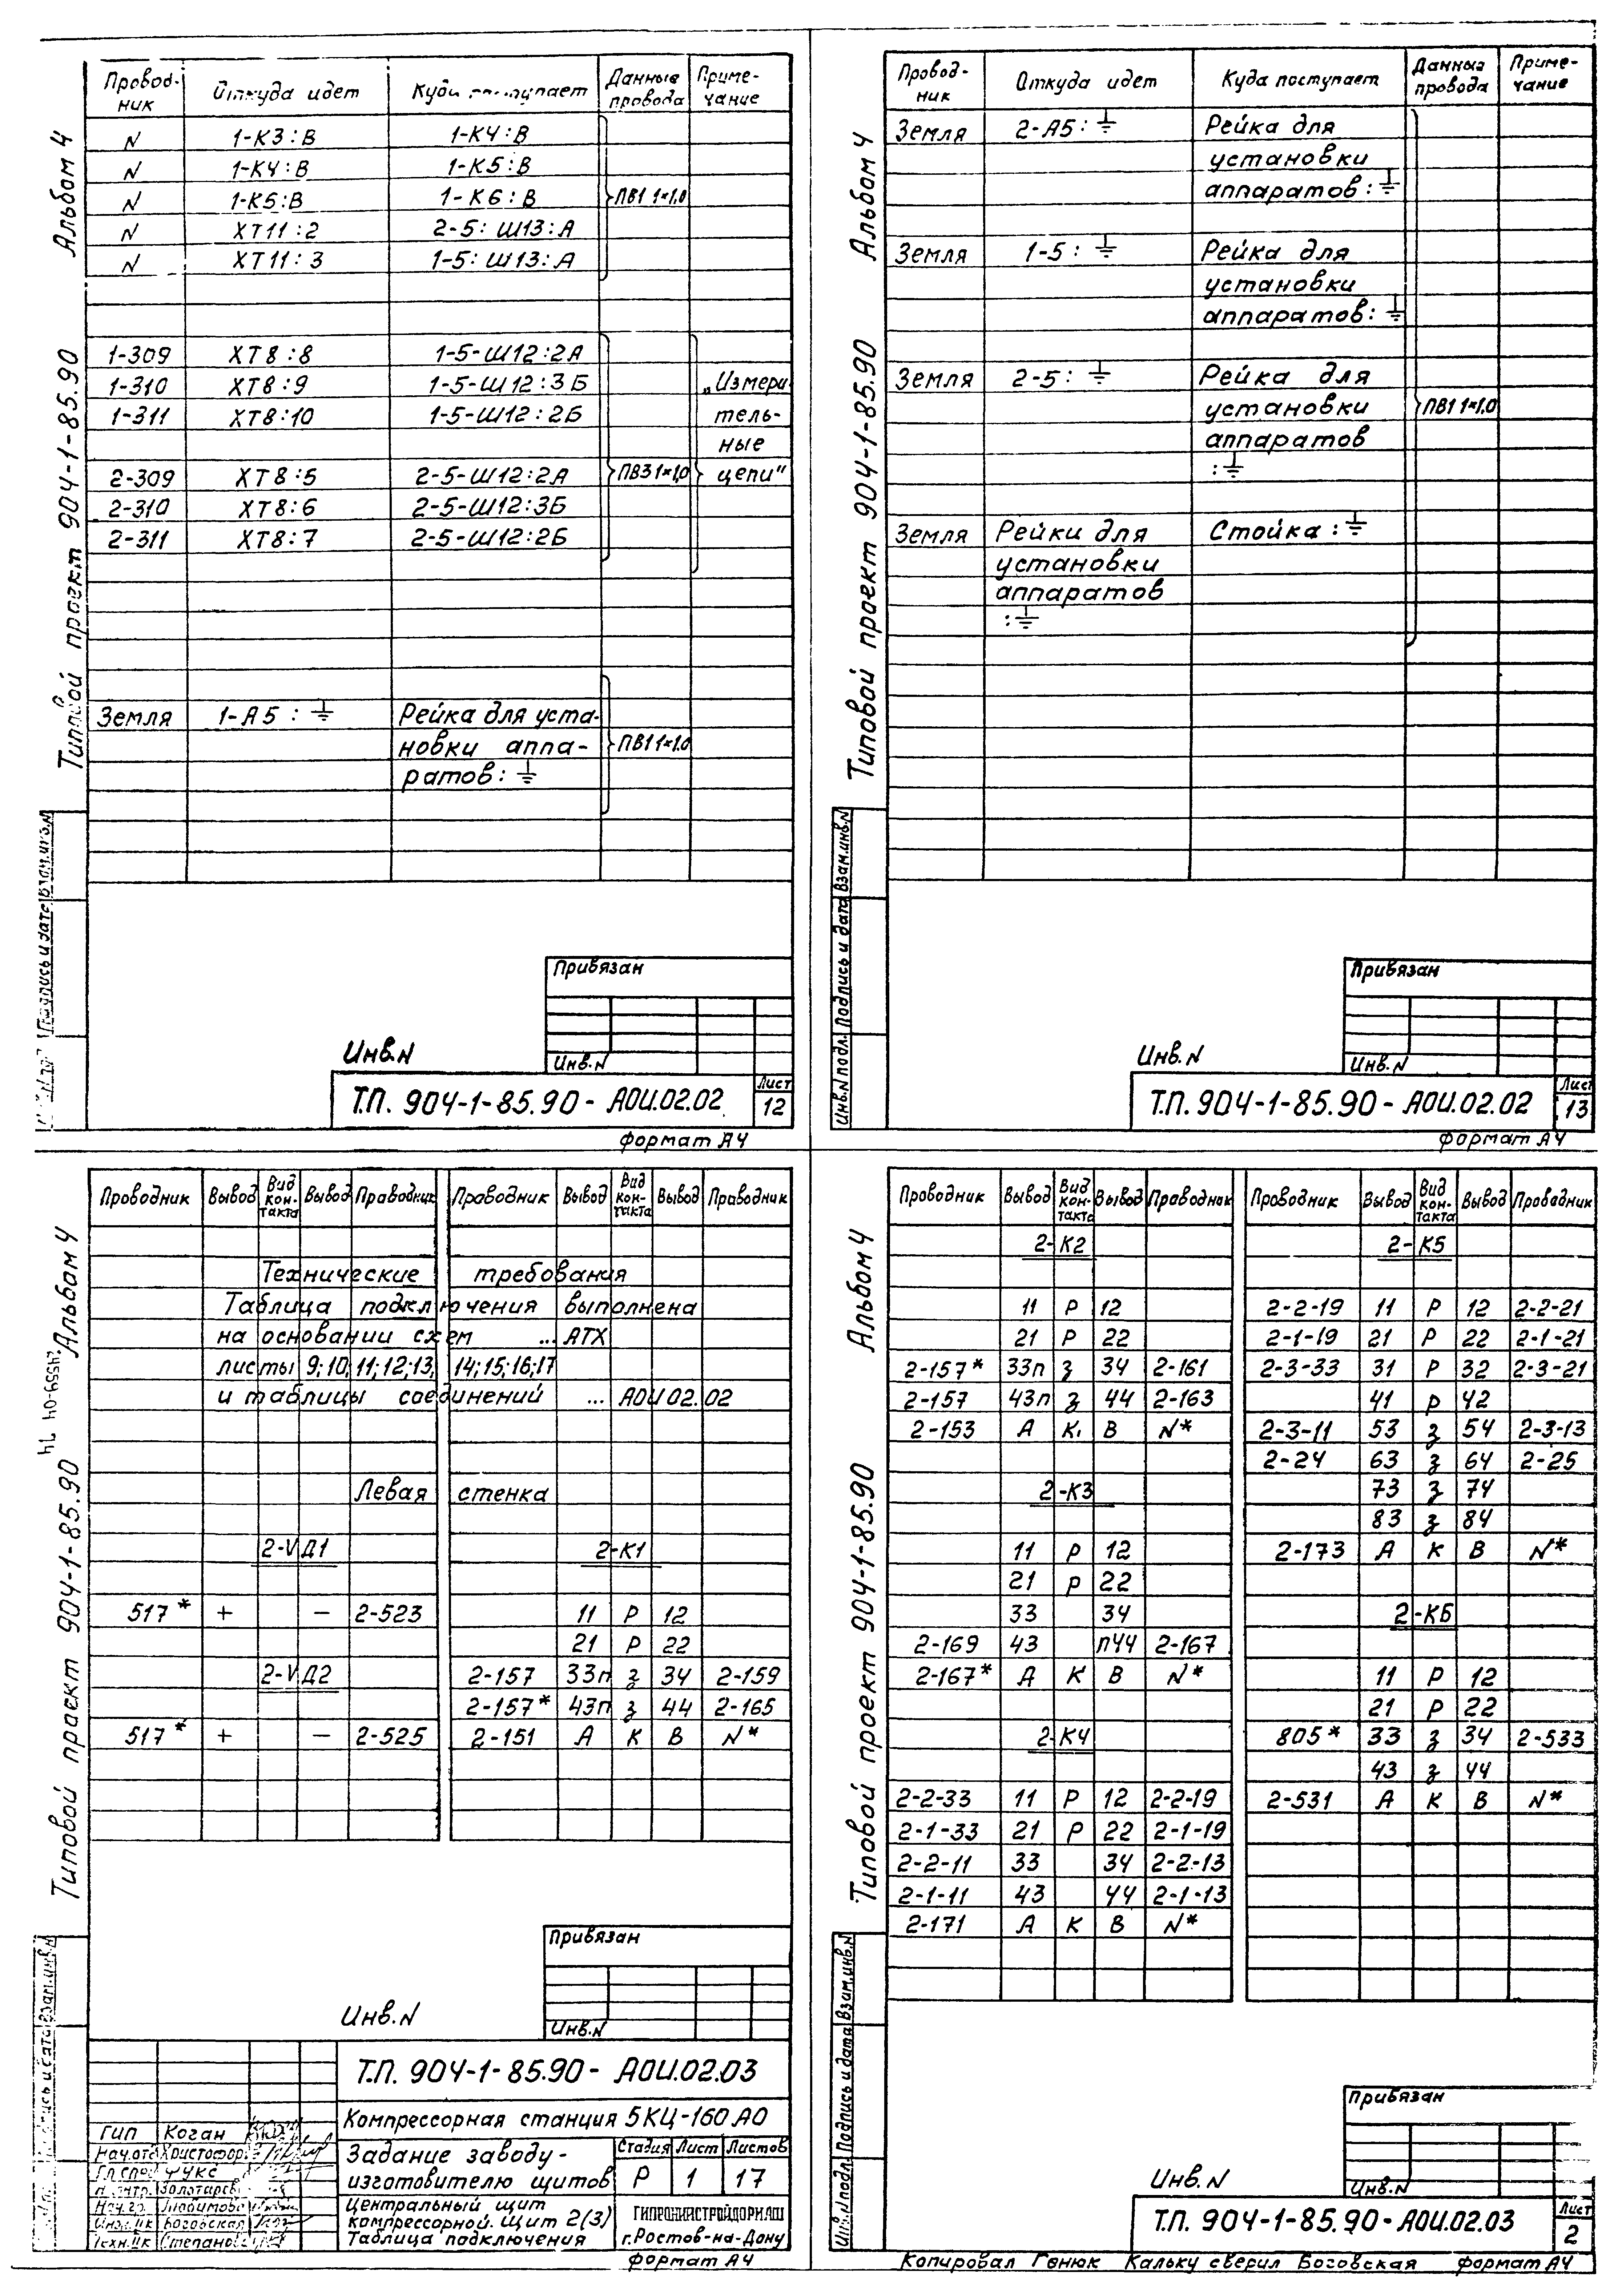 Альбом 4
Типовой проект 904-1-85.90
Провод-ник Откуда идет Куда поступает Данные провода Приме-чание
N 1-К3:В 1-К4:В
N 1-К4:В 1-К5:В
N 1-К5:В 1-К6:В ПВ1 1×1,0
N ХТ11:2 2-5:Ш13:А
N ХТ11:3 1-5:Ш13:А
1-309 ХТ8:8 1-5-Ш12:2А
1-310 ХТ8:9 1-5-Ш12:3Б „Измери
1-311 ХТ8:10 1-5-Ш12:2Б тель-
ные
2-309 ХТ8:5 2-5-Ш12:2А ПВ3 1×1,0 цепи"
2-310 ХТ8:6 2-5-Ш12:3Б
2-311 ХТ8:7 2-5-Ш12:2Б
Земля 1-А5:⏚ Рейка для уста-
новки аппа- ПВ1 1×1,0
ратов:⏚
Подпись и дата Взам.инв.N
Привязан
Инв.N
Инв.N
Т.П. 904-1-85.90-АОИ.02.02
Лист
12
формат А4
Альбом 4
Типовой проект 904-1-85.90
Провод-ник Откуда идет Куда поступает Данные провода Приме-чание
Земля 2-А5:⏚ Рейка для
установки
аппаратов:⏚
Земля 1-5:⏚ Рейка для
установки
аппаратов:⏚
Земля 2-5:⏚ Рейка для
установки ПВ1 1×1,0
аппаратов
:⏚
Земля Рейки для Стойка:⏚
установки
аппаратов
:⏚
Инв.N подл. Подпись и дата Взам.инв.N
Привязан
Инв.N
Инв.N
Т.П. 904-1-85.90-АОИ.02.02
Лист
13
формат А4
Альбом 4
24559-04 74
Типовой проект 904-1-85.90
Проводник Вывод Вид кон-такта Вывод Проводник Проводник Вывод Вид кон-такта Вывод Проводник
Технические требования
Таблица подключения выполнена
на основании схем ...АТХ
листы 9;10;11;12;13; 14;15;16;17
и таблицы соединений ... АОИ 02.02
Левая стенка
2-VД1 2-К1
517* + − 2-523 11 Р 12
21 Р 22
2-VД2 2-157 33п з 34 2-159
2-157* 43п з 44 2-165
517* + − 2-525 2-151 А К В N*
Привязан
Инв.N
Инв.N
Т.П. 904-1-85.90-АОИ.02.03
Компрессорная станция 5КЦ-160 АО
ГИП Коган
Нач.отд Христофор.
Гл.спец Фукс
Н.контр. Золотарев
Нач.гр. Любимова
Инженк Боговская
Техн.IIк Степано
Задание заводу-
изготовителю щитов
Стадия Лист Листов
Р 1 17
Центральный щит
компрессорной. Щит 2(3)
Таблица подключения
ГИПРОНИИСТРОЙДОРМАШ
г.Ростов-на-Дону
формат А4
Альбом 4
Типовой проект 904-1-85.90
Проводник Вывод Вид кон-такта Вывод Проводник Проводник Вывод Вид кон-такта Вывод Проводник
2-К2 2-К5
11 Р 12 2-2-19 11 Р 12 2-2-21
21 Р 22 2-1-19 21 Р 22 2-1-21
2-157* 33п з 34 2-161 2-3-33 31 Р 32 2-3-21
2-157 43п з 44 2-163 41 Р 42
2-153 А К В N* 2-3-11 53 з 54 2-3-13
2-24 63 з 64 2-25
2-К3 73 з 74
83 з 84
11 Р 12 2-173 А К В N*
21 Р 22
33 34 2-К6
2-169 43 п44 2-167
2-167* А К В N* 11 Р 12
21 Р 22
2-К4 805* 33 з 34 2-533
43 з 44
2-2-33 11 Р 12 2-2-19 2-531 А К В N*
2-1-33 21 Р 22 2-1-19
2-2-11 33 34 2-2-13
2-1-11 43 44 2-1-13
2-171 А К В N*
Инв.N подл. Подпись и дата Взам.инв.N
Привязан
Инв.N
Инв.N
Т.П. 904-1-85.90-АОИ.02.03
Лист
2
Копировал Генюк Кальку сверил Боговская формат А4